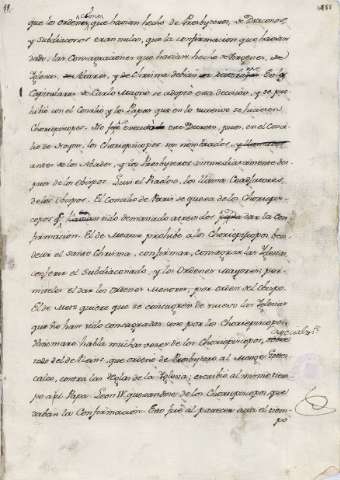 que los ordenes, que havian hecho de Presbyteros, de Diaconos,
y subdiaconos eran nulos, que la confirmacion que havian
dado, las Consagraciones que havian hecho de Virgenes, de
Iglesias, de Altares, y de Chrisma debian
Capitulares de Carlo Magno se alegró esta decision, y se pro
hibió en el Concilio y los Papas que en lo sucesivo se hiciesen
Chorepiscopos. No fue executado este Decreto, pues, en el Conci
lio de los Chorepiscopos son nombrados,
antes de los Abades, y los Presbyteros inmediatamente des
pues de los Obispos. Luis el Piadoso, los llama Coadjutores
de los Obispos. El Concilio de Paris se quexa de los Chorepis
copos q.e havian sido demasiado atrevidos para dar la Con
firmacion. El de Meaux prohibe a los Chorepiscopos ben
decir el santo Chrisma, confirmar, consagrar las Iglesias,
conferir el Subdiaconado, y los Ordenes Mayores; per
mitele el dar los Ordenes Menores, por orden del Obispo.
El de Metz quiere que se consagren de nuevo las Iglesias
que no han sido consagradas sino por los Chorepiscopos.
Hincmaro habla muchas veces de los Chorepiscopos,
de que ordenó de Presbytero al Monge Gotes
calco, contra las Reglas de la Iglesia; escribió al mismo tiem
po a el Papa Leon IV. quexandose de los Chorepiscopos que
daban la Confirmacion. Esto fué al parecer acia el tiem
po